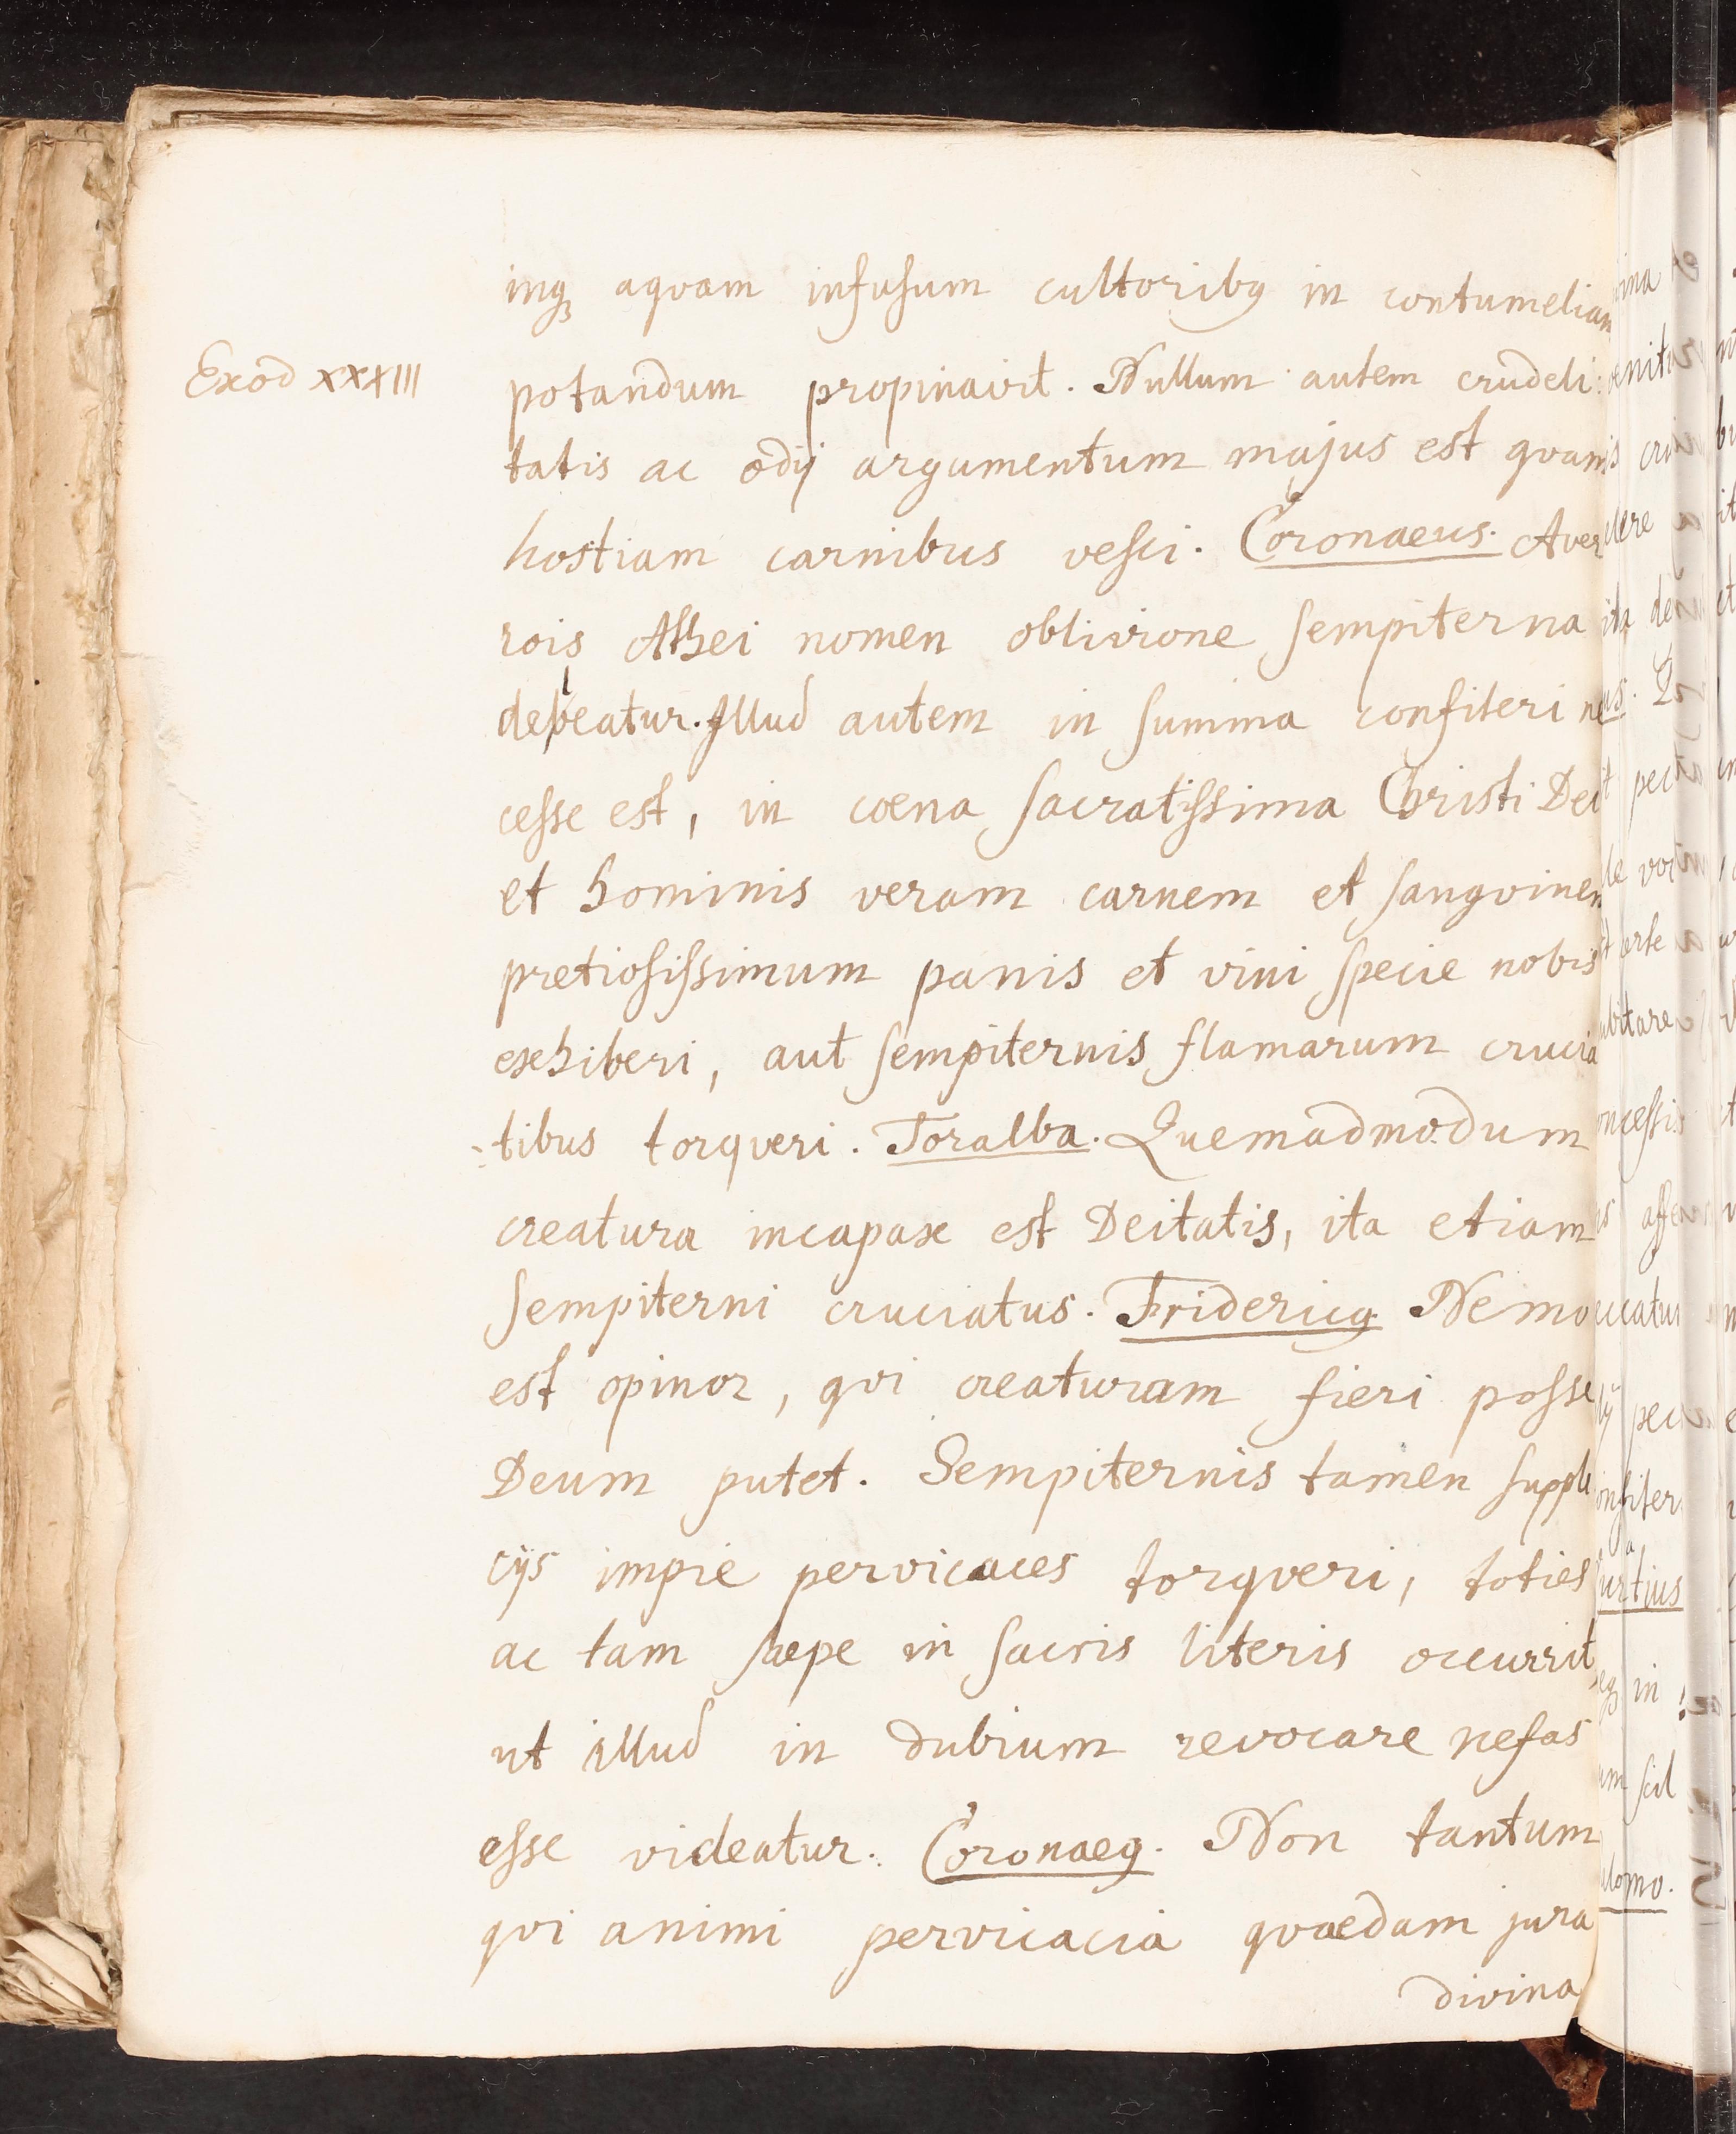 inq; aqvam infusum cultoribq in contumeliam
Exod XXXIII
potandum propinavit. Nullum autem crudeli:
tatis ac odij argumentum majus est qvam
hostiam carnibus vesci. Coronaeus. Aver
rois Athei nomen oblivione sempiterna
deleatur. Illud autem in summa confiteri ne
cesse est, in coena sacratissima Christi Dei
et hominis veram carnem et sangvinem
pretiosissimum panis et vini specie nobis
exhiberi, aut sempiternis flamarum crucia
-tibus torqveri. Toralba. Quemadmodum
creatura incapax est Deitatis, ita etiam
sempiterni cruciatus. Fridericq Nemo
est opinor, qvi creaturam fieri posse
Deum putet. Sempiternis tamen suppli
cijs impie pervicaces torqveri, toties
ac tam saepe in sacris literis occurrit
ut illud in dubium revocare nefas
esse videatur. Coronaeq. Non tantum
qvi animi pervicacia qvaedam jura
divina